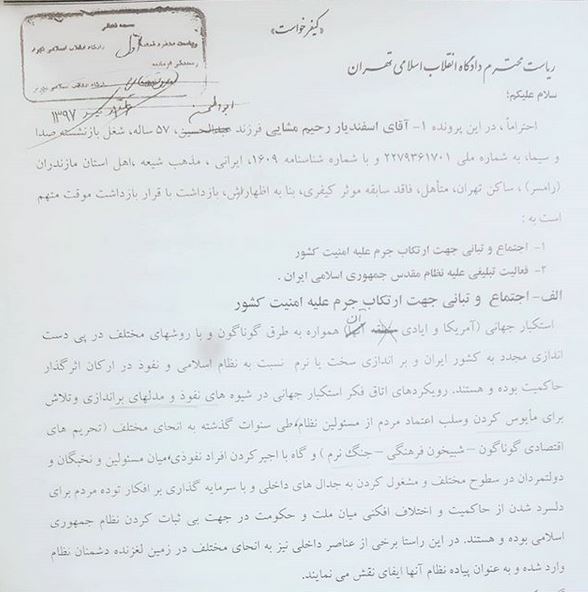 «کیفرخواست»
ریاست محترم دادگاه انقلاب اسلامی تهران
سلام علیکم؛
احتراماً، در این پرونده ۱- آقای اسفندیار رحیم مشایی فرزند عبدالحسین، ۵۷ ساله، شغل بازنشسته صدا
و سیما، به شماره ملی ۲۲۷۹۳۶۱۷۰۱ و با شماره شناسنامه ۱۶۰۹، ایرانی ، مذهب شیعه ،اهل استان مازندران
(رامسر) ، ساکن تهران، متأهل، فاقد سابقه موثر کیفری، بنا به اظهارش، بازداشت با قرار بازداشت موقت متهم
است به :
۱- اجتماع و تبانی جهت ارتکاب جرم علیه امنیت کشور
۲- فعالیت تبلیغی علیه نظام مقدس جمهوری اسلامی ایران .
الف- اجتماع و تبانی جهت ارتکاب جرم علیه امنیت کشور
استکبار جهانی (آمریکا و ایادی آن) همواره به طرق گوناگون و با روشهای مختلف در پی دست
اندازی مجدد به کشور ایران و بر اندازی سخت یا نرم نسبت به نظام اسلامی و نفوذ در ارکان اثرگذار
حاکمیت بوده و هستند. رویکردهای اتاق فکر استکبار جهانی در شیوه های نفوذ و مدلهای براندازی وتلاش
برای مأیوس کردن وسلب اعتماد مردم از مسئولین نظام،طی سنوات گذشته به انحای مختلف (تحریم های
اقتصادی گوناگون – شبیخون فرهنگی – جنگ نرم ) و گاه با اجیر کردن افراد نفوذی،میان مسئولین و نخبگان و
دولتمردان در سطوح مختلف و مشغول کردن به جدال های داخلی و با سرمایه گذاری بر افکار توده مردم برای
دلسرد شدن از حاکمیت و اختلاف افکنی میان ملت و حکومت در جهت بی ثبات کردن نظام جمهوری
اسلامی بوده و هستند. در این راستا برخی از عناصر داخلی نیز به انحای مختلف در زمین لغزنده دشمنان نظام
وارد شده و به عنوان پیاده نظام آنها ایفای نقش می نمایند.